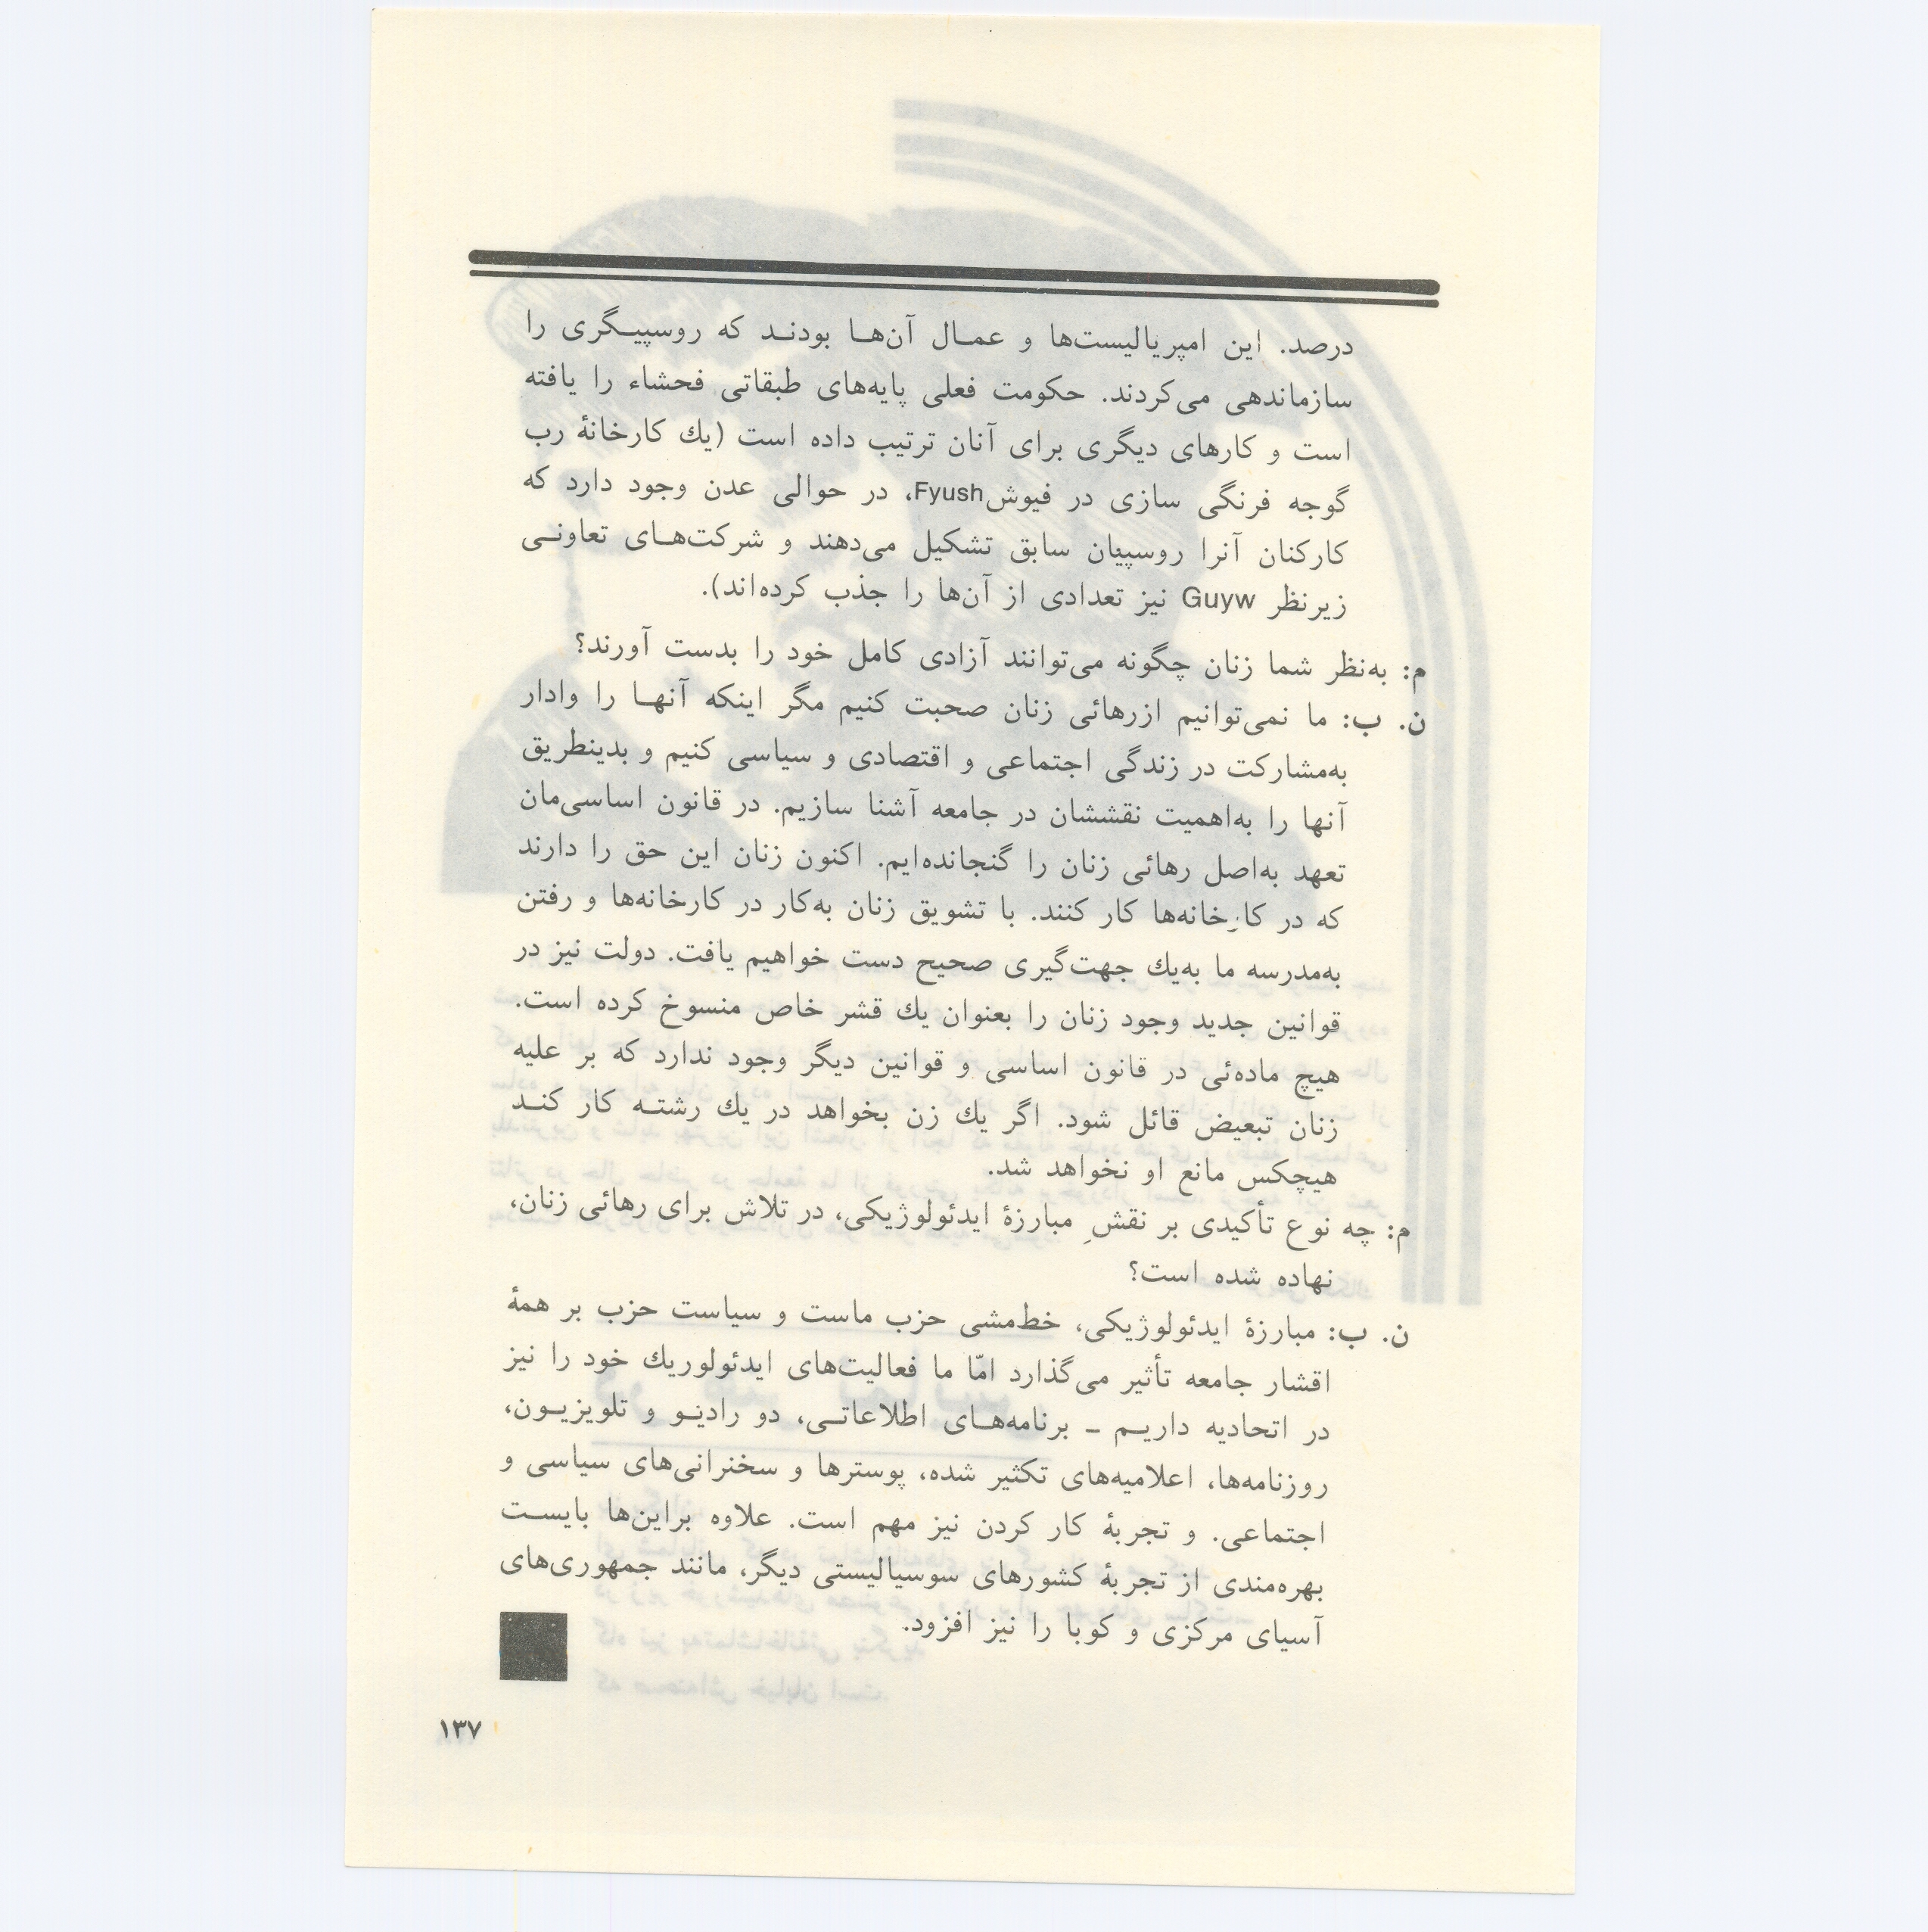 درصد. این امپریالیست‌ها و عمـال آن‌هـا بودنـد که روسپیـگری را
سازماندهی می‌کردند. حکومت فعلی پایه‌های طبقاتی فحشاء را یافته
است و کارهای دیگری برای آنان ترتیب داده است (یك کارخانهٔ رب
گوجه فرنگی سازی در فیوشFyush، در حوالی عدن وجود دارد که
کارکنان آنرا روسپیان سابق تشکیل می‌دهند و شرکت‌هـای تعاونـی
زیرنظر Guyw نیز تعدادی از آن‌ها را جذب کرده‌اند).
م: به‌نظر شما زنان چگونه می‌توانند آزادی کامل خود را بدست آورند؟
ن. ب: ما نمی‌توانیم ازرهائی زنان صحبت کنیم مگر اینکه آنهـا را وادار
به‌مشارکت در زندگی اجتماعی و اقتصادی و سیاسی کنیم و بدینطریق
آنها را به‌اهمیت نقششان در جامعه آشنا سازیم. در قانون اساسی‌مان
تعهد به‌اصل رهائی زنان را گنجانده‌ایم. اکنون زنان این حق را دارند
که در کارخانه‌ها کار کنند. با تشویق زنان به‌کار در کارخانه‌ها و رفتن
به‌مدرسه ما به‌یك جهت‌گیری صحیح دست خواهیم یافت. دولت نیز در
قوانین جدید وجود زنان را بعنوان یك قشر خاص منسوخ کرده است.
هیچ ماده‌ئی در قانون اساسی و قوانین دیگر وجود ندارد که بر علیه
زنان تبعیض قائل شود. اگر یك زن بخواهد در یك رشتـه کار کنـد
هیچکس مانع او نخواهد شد.
م: چه نوع تأکیدی بر نقشِ مبارزهٔ ایدئولوژیکی، در تلاش برای رهائی زنان،
نهاده شده است؟
ن. ب: مبارزهٔ ایدئولوژیکی، خط‌مشی حزب ماست و سیاست حزب بر همهٔ
اقشار جامعه تأثیر می‌گذارد امّا ما فعالیت‌های ایدئولوریك خود را نیز
در اتحادیه داریـم ـ برنامه‌هـای اطلاعاتـی، دو رادیـو و تلویزیـون،
روزنامه‌ها، اعلامیه‌های تکثیر شده، پوسترها و سخنرانی‌های سیاسی و
اجتماعی. و تجربهٔ کار کردن نیز مهم است. علاوه براین‌ها بایسـت
بهره‌مندی از تجربهٔ کشورهای سوسیالیستی دیگر، مانند جمهوری‌های
آسیای مرکزی و کوبا را نیز افزود.
۱۳۷